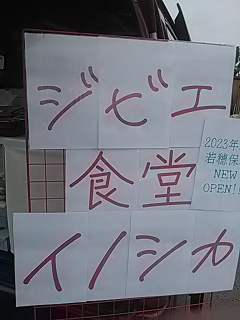 ジビエ
食堂
イノシカ
2023年
若穂保
NEW
OPEN!